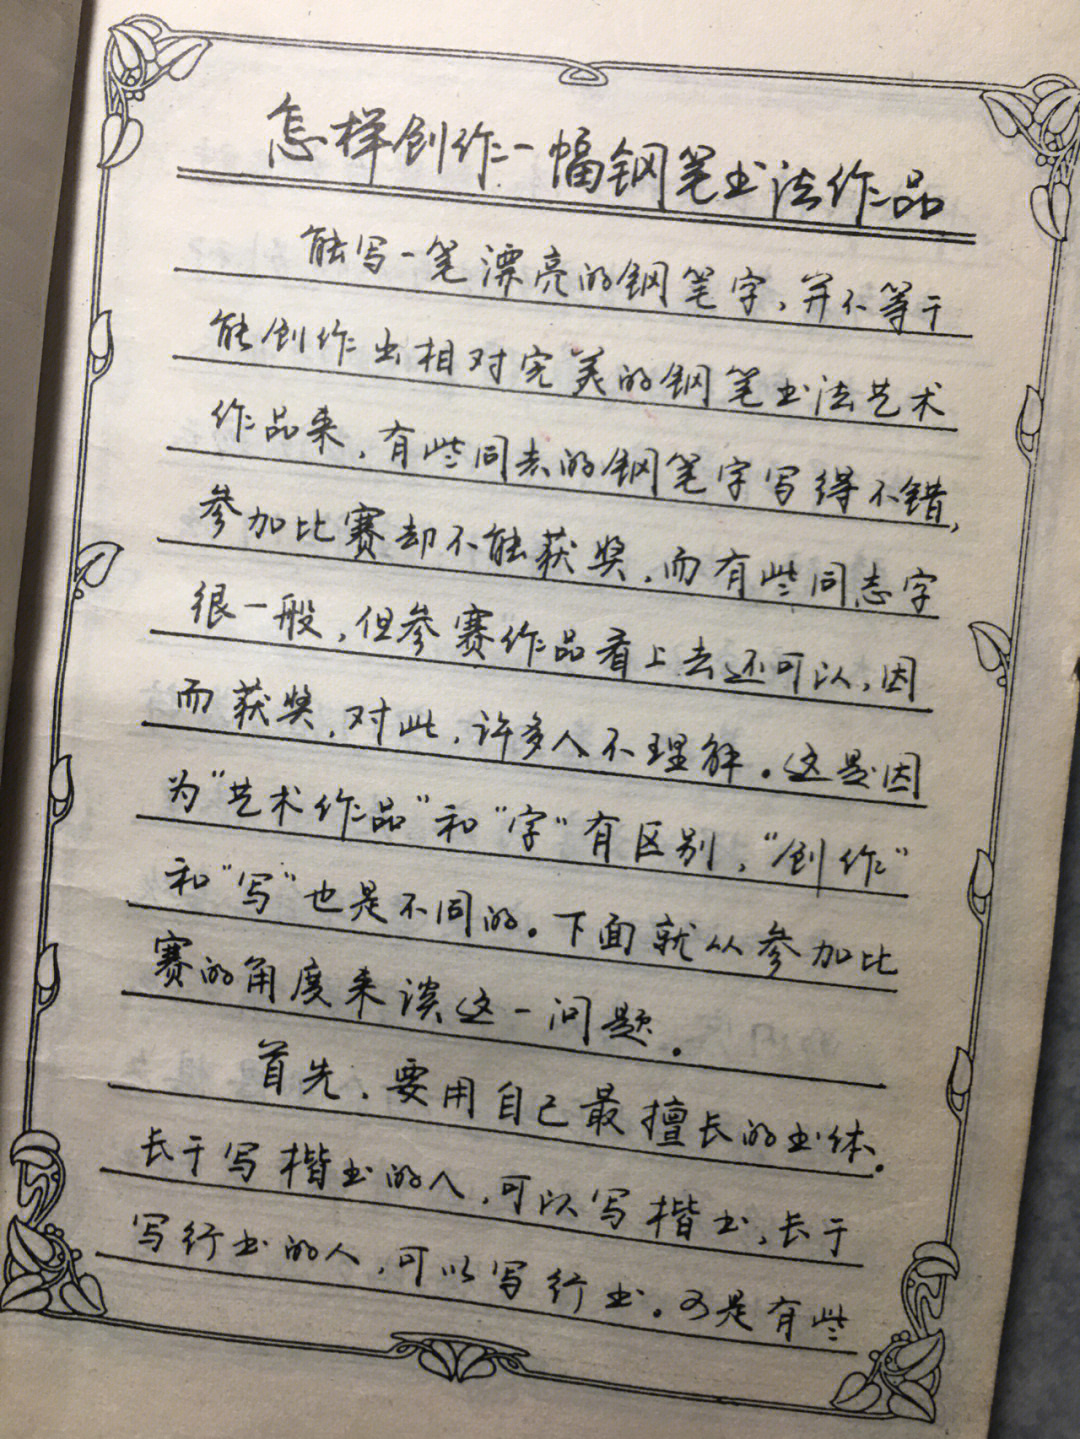 怎样创作一幅钢笔书法作品
能写一笔漂亮的钢笔字,并不等于
能创作出相对完美的钢笔书法艺术
作品来,有些同志的钢笔字写得不错,
参加比赛却不能获奖,而有些同志字
很一般,但参赛作品看上去还可以,因
而获奖,对此,许多人不理解。这是因
为“艺术作品”和“字”有区别,“创作”
和“写”也是不同的。下面就从参加比
赛的角度来谈这一问题。
首先,要用自己最擅长的书体。
长于写楷书的人,可以写楷书,长于
写行书的人,可以写行书。可是有些